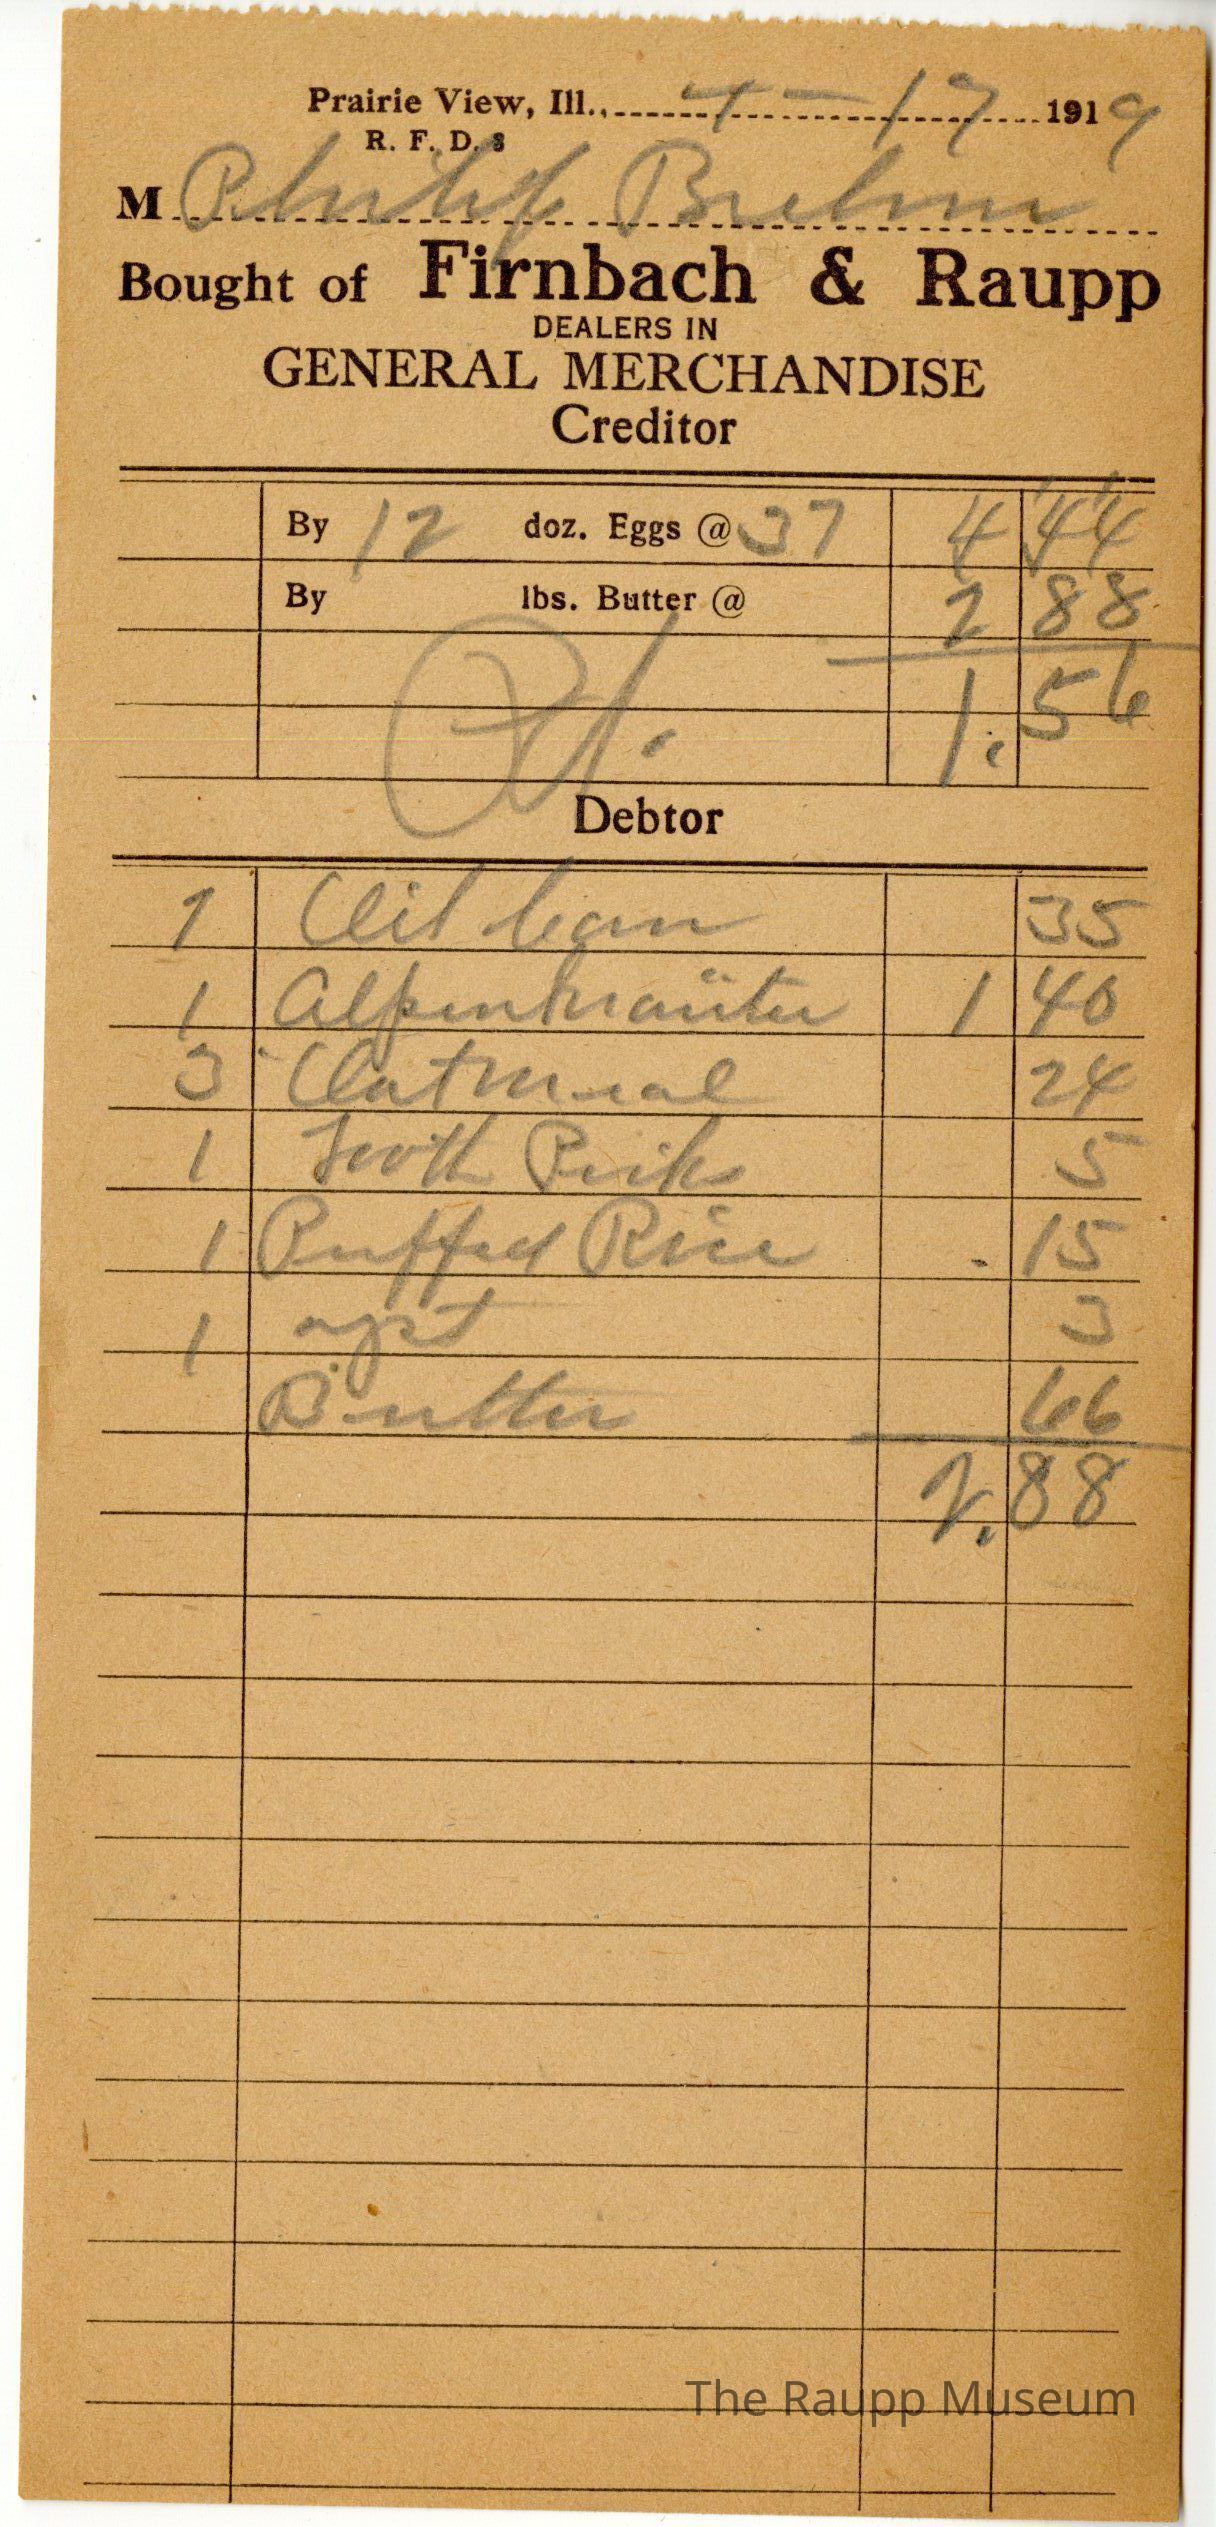 Prairie View, Ill., 4-17 1919
R. F. D. 3
M Philip Brehm
Bought of Firnbach & Raupp
DEALERS IN
GENERAL MERCHANDISE
Creditor
By 12 doz. Eggs @ 37 4 44
By lbs. Butter @ 2 88
1.56
Pd.
Debtor
1 Oil Can 35
1 Alpenkräuter 1 40
3 Oatmeal 24
1 Tooth Picks 5
1 Puffed Rice 15
1 3
Butter 66
2.88
The Raupp Museum